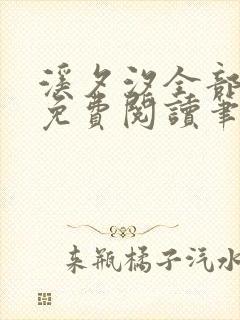 溪夕汐全部
免費閱讀筆
来瓶橘子汽水